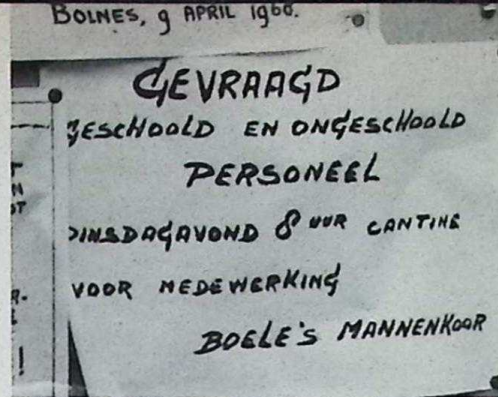 BOLNES, 9 APRIL 1968.
GEVRAAGD
GESCHOOLD EN ONGESCHOOLD
PERSONEEL
DINSDAGAVOND 8 UUR CANTINE
VOOR MEDEWERKING
BOELE'S MANNENKOOR